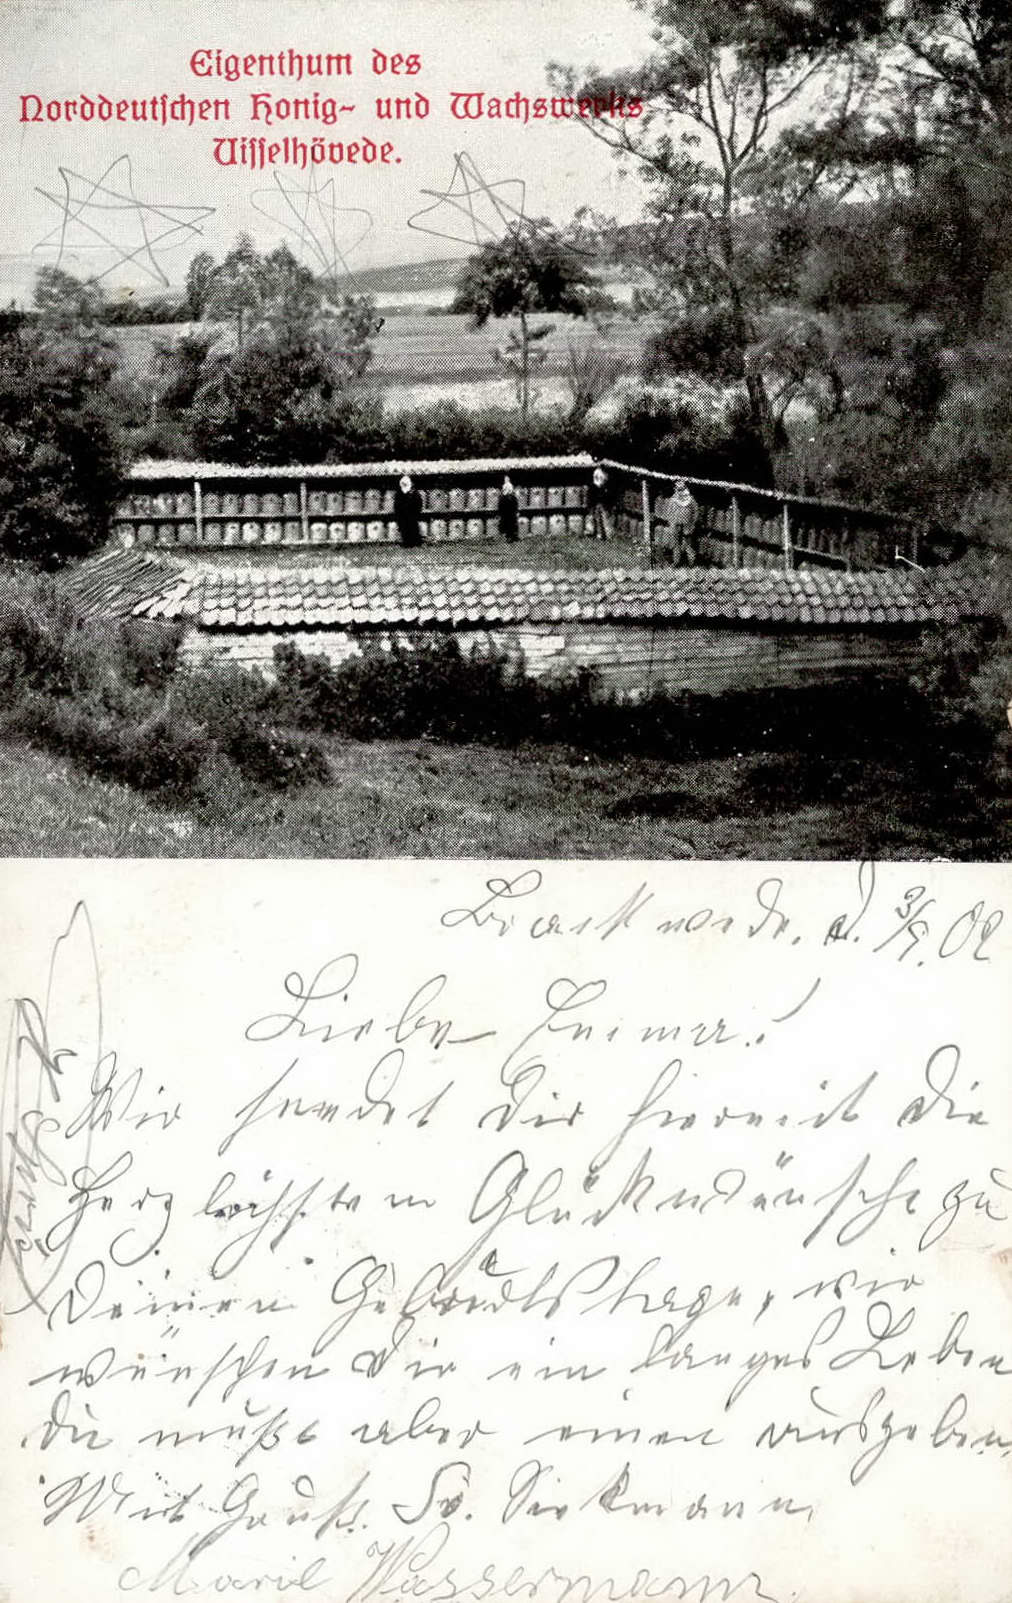 Eigenthum des
Norddeutschen Honig- und Wachswerks
Visselhövede.
Brackwede, d. 3/9. 02
Liebe Emma!
Wir sendet Dir hiermit die
Herzlichsten Glückwünsche zu
Deinen Geburtstage, wir
wünschen Dir ein langes Leben
Du mußt aber einen ausgeben
Mit Gruß. Fr. Siekmann
Marie Wassermann.